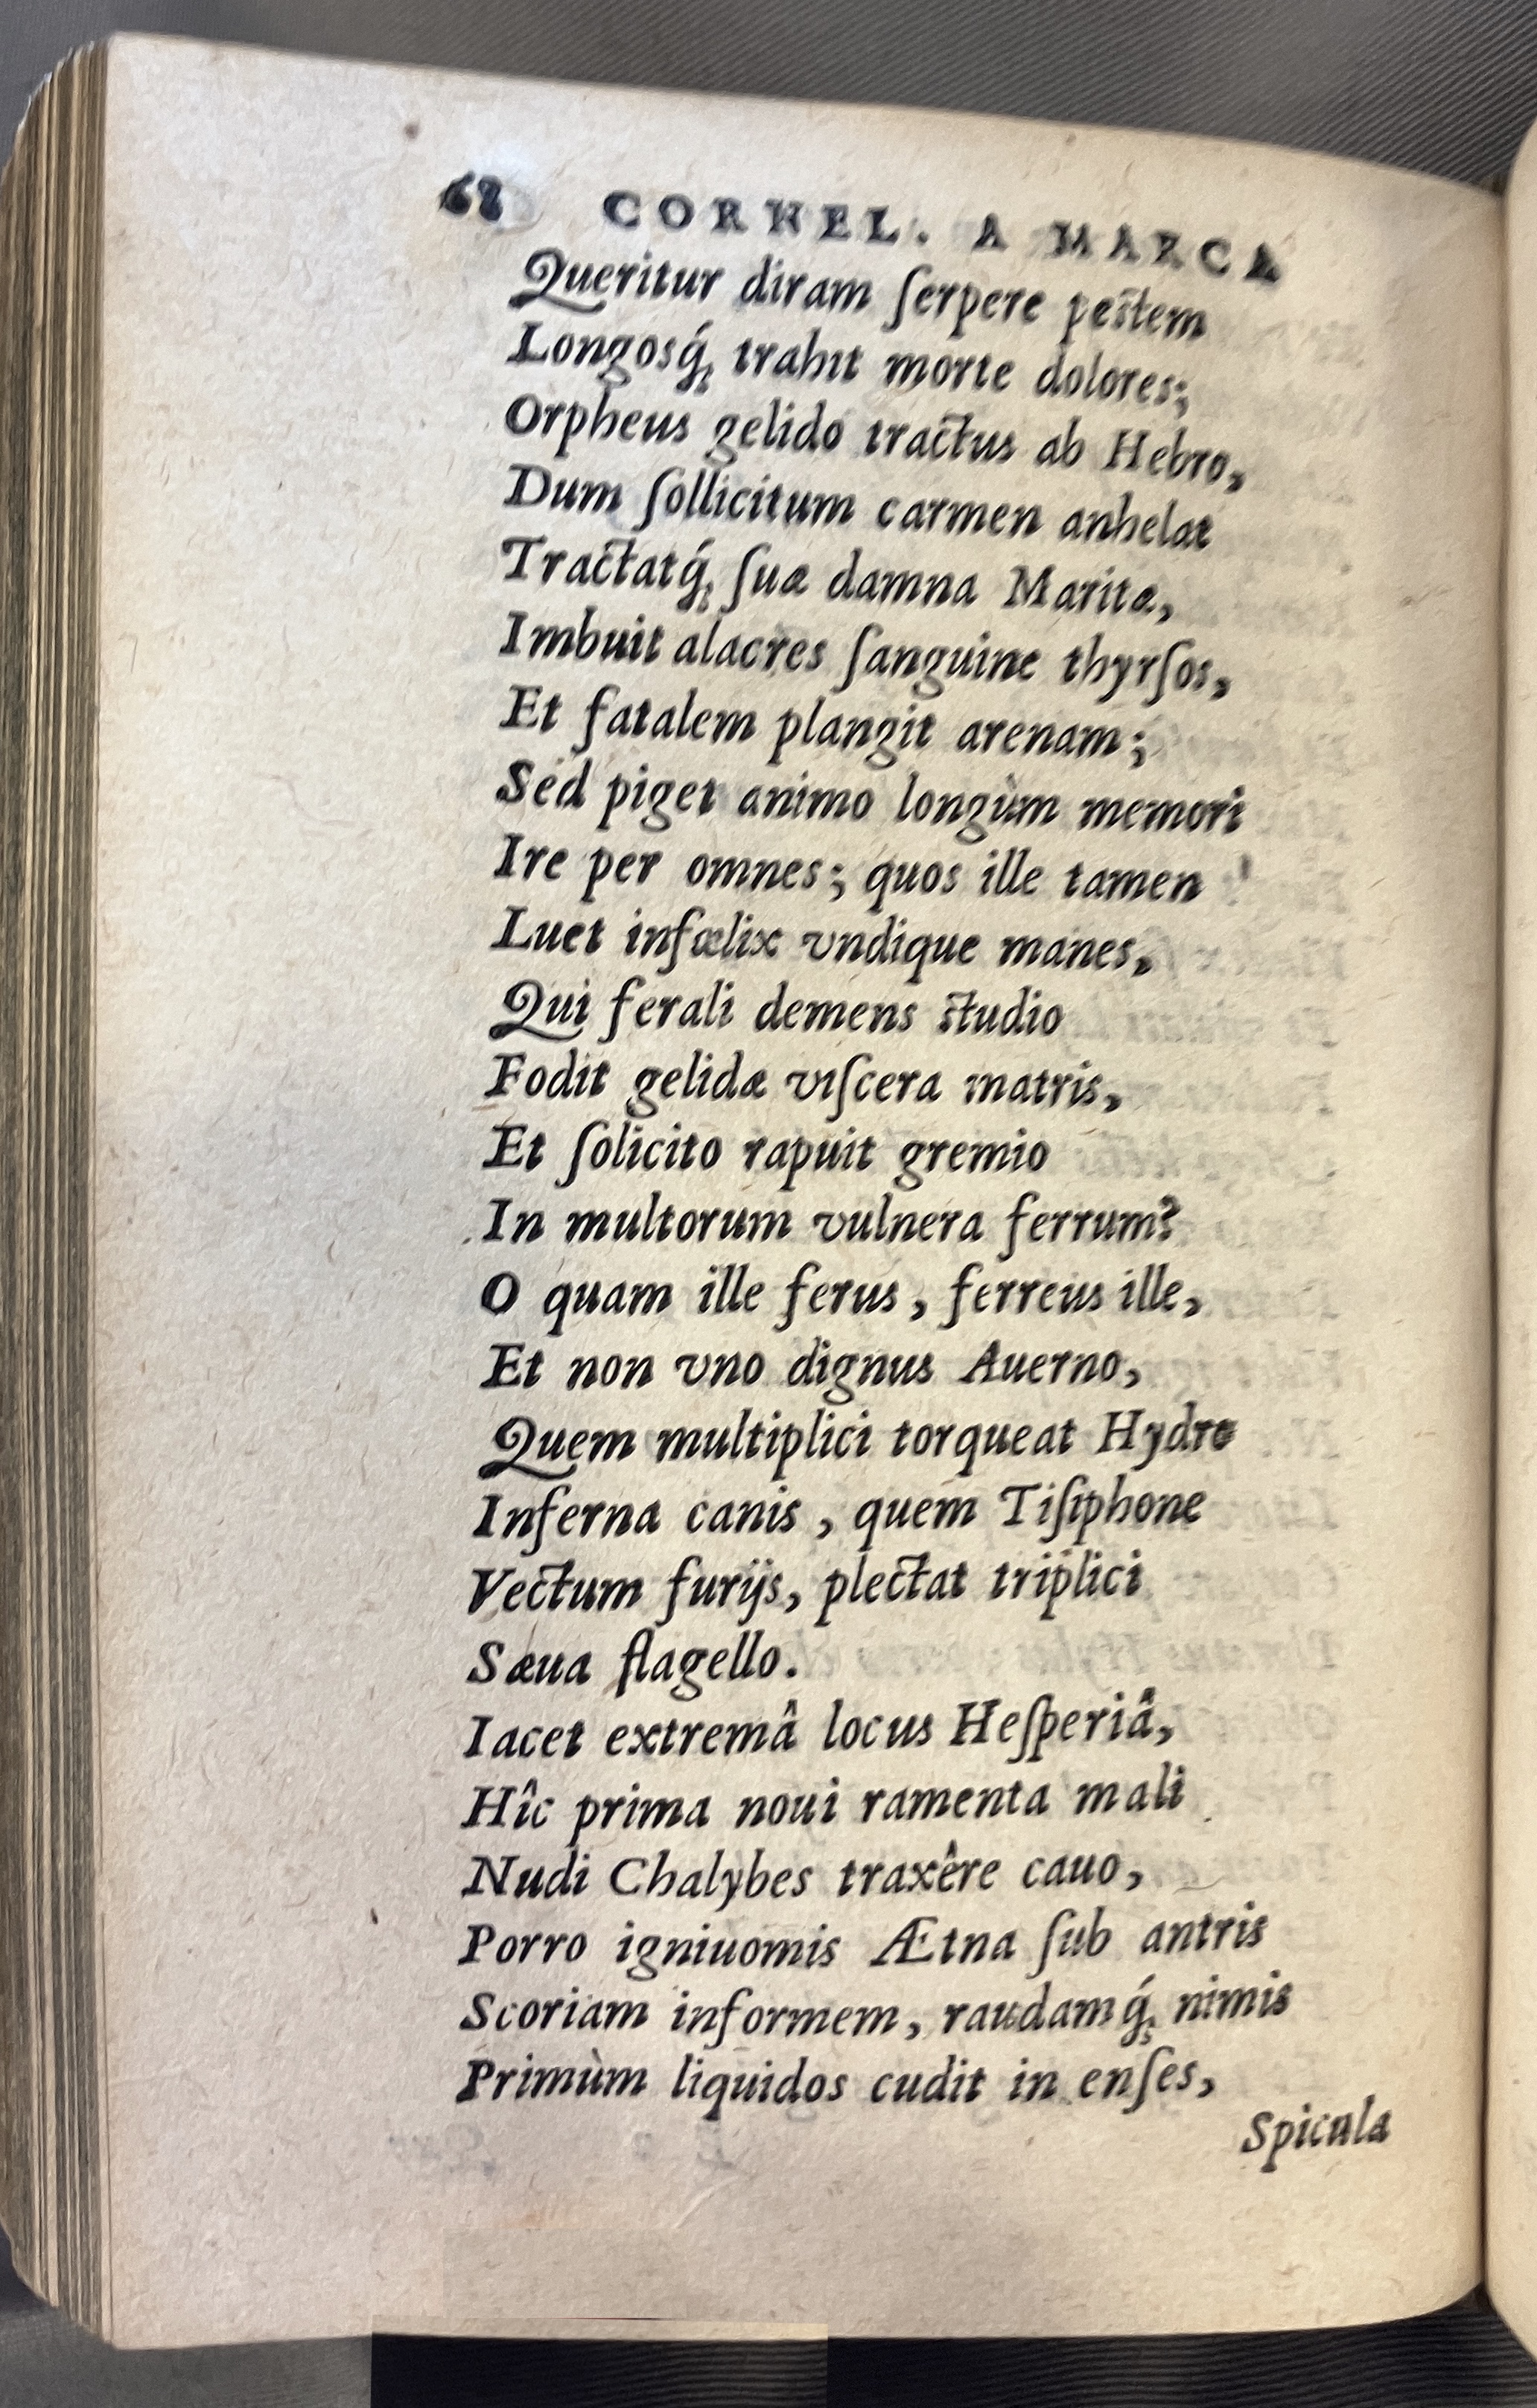 68 CORNEL. A MARCA
Queritur diram ſerpere peſtem
Longosq́; trahit morte dolores;
Orpheus gelido tractus ab Hebro,
Dum ſollicitum carmen anhelat
Tractatq́; ſuæ damna Maritæ,
Imbuit alacres ſanguine thyrſos,
Et fatalem plangit arenam;
Sed piget animo longùm memori
Ire per omnes; quos ille tamen
Luet infœlix vndique manes,
Qui ferali demens ſtudio
Fodit gelidæ viſcera matris,
Et ſolicito rapuit gremio
In multorum vulnera ferrum?
O quam ille ferus, ferreus ille,
Et non vno dignus Auerno,
Quem multiplici torqueat Hydro
Inferna canis, quem Tiſiphone
Vectum furijs, plectat triplici
Sæua flagello.
Iacet extremâ locus Heſperiâ,
Hîc prima noui ramenta mali
Nudi Chalybes traxêre cauo,
Porro igniuomis Ætna ſub antris
Scoriam informem, raudamq́; nimis
Primùm liquidos cudit in enſes,
Spicula